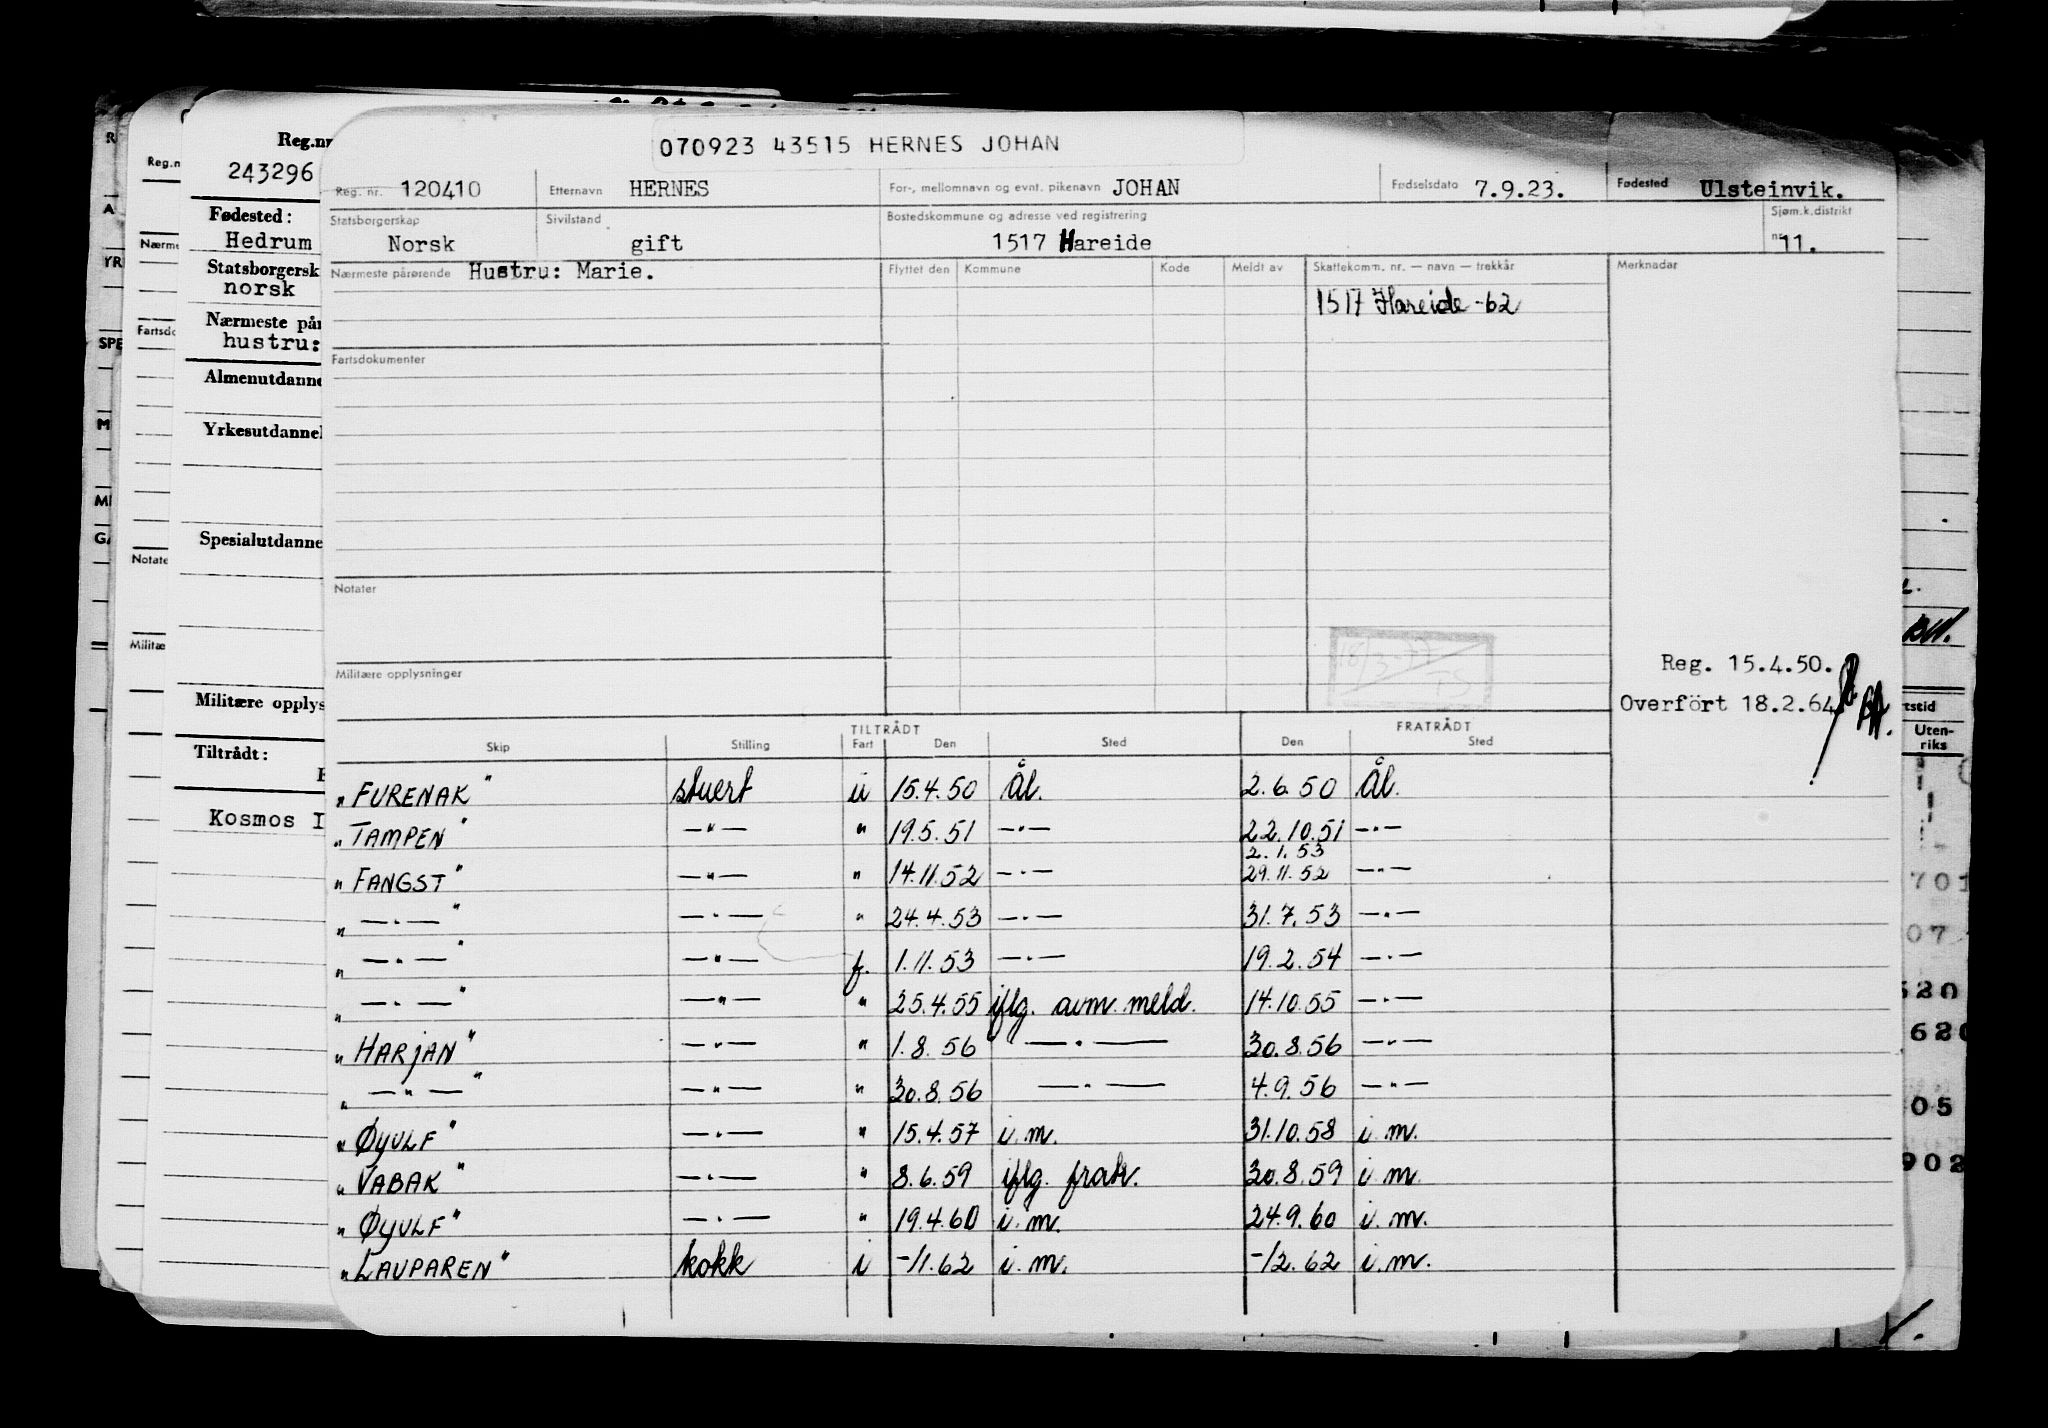 070923 43515 HERNES JOHAN
Reg. nr. 120410 Etternavn HERNES For-, mellomnavn og evnt. pikenavn JOHAN Fødselsdato 7.9.23. Fødested Ulsteinvik.
Statsborgerskap Sivilstand Bostedskommune og adresse ved registrering Sjøm.k.distrikt
Norsk gift 1517 Hareide nr 11.
Nærmeste pårørende Hustru: Marie. Flyttet den Kommune Kode Meldt av Skattekomm. nr. — navn — trekkår Merknadar
1517 Hareide -62
Fartsdokumenter
Notater
18/3-77
TS
Militære opplysninger
Reg. 15.4.50.
Overført 18.2.64
TILTRÅDT FRATRÅDT
Skip Stilling Fart Den Sted Den Sted
"FURENAK" stuert u 15.4.50 Ål. 2.6.50 Ål.
"TAMPEN" —"— " 19.5.51 —"— 22.10.51 —"—
2.1.53
"FANGST" —"— " 14.11.52 —"— 29.11.52 —"—
"—"—" —"— " 24.4.53 —"— 31.7.53 —"—
"—"—" —"— f. 1.11.53 —"— 19.2.54 —"—
"—"—" —"— " 25.4.55 iflg. avm. meld. 14.10.55 —"—
"HARJAN" —"— " 1.8.56 —"— 30.8.56 —"—
"—"—" —"— " 30.8.56 —"— 4.9.56 —"—
"ØYULF" —"— " 15.4.57 i.m. 31.10.58 i.m.
"VABAK" —"— " 8.6.59 iflg. frak. 30.8.59 i.m.
"ØYULF" —"— " 19.4.60 i.m. 24.9.60 i.m.
"LAUPAREN" kokk i -11.62 i.m. -12.62 i.m.
Reg.nr
243296
Fødested:
Hedrum
Statsborgersk
norsk
Nærmeste pår
hustru:
Almenutdanne
Yrkesutdannel
Spesialutdanne
Militære opplys
Tiltrådt:
Kosmos I
Reg.n
Nærme
Fartsdo
Notate
Militæ
A
YR
SPE
M
BW.
tstid
Uten-
riks
701
07
620
05
902